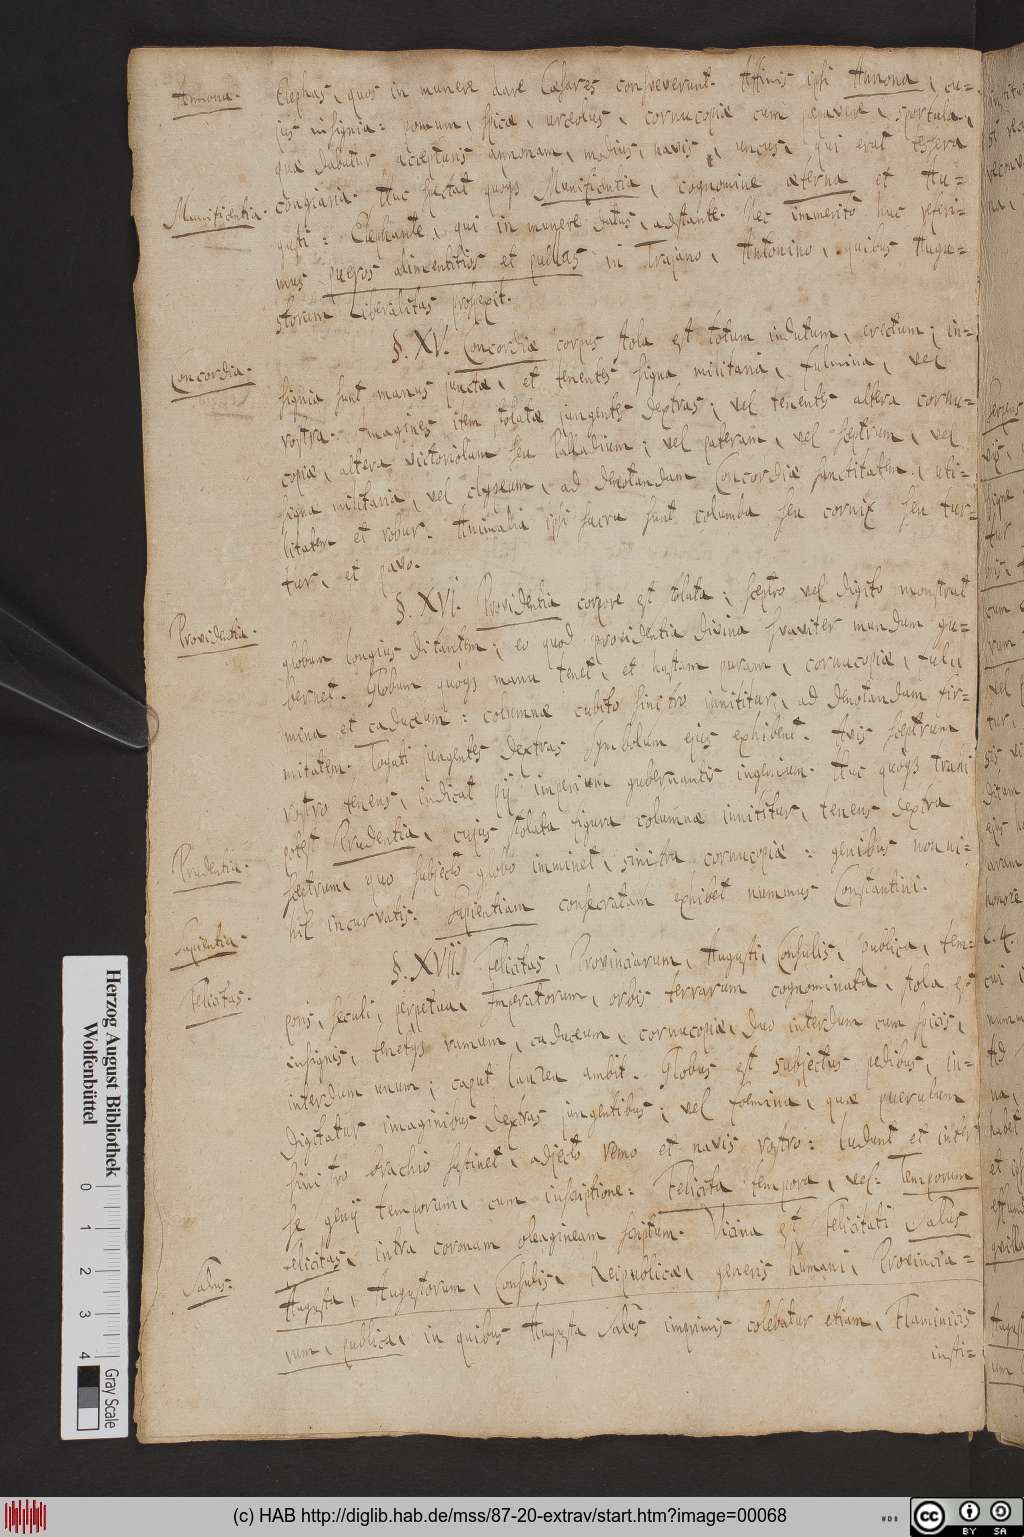 Annona.
Elephas, quos in munere dare Cæsares consveverunt. Affinis ipsi Annona, cu=
jus insignia: pomum, spicæ, urceolus, cornucopiæ cum papavere, sportula,
quæ dabatur accepturis annonam, modius, navis, uncus, qui erat tessera
Munificentia.
congiaria. Huc spectat quoqs Munificentia, cognomine æterna et Au=
gusti: Elephante, qui in munere datus, adstante. Nec immeritò huc referi=
mus pueros alimentitios et puellas in Trajano, Antonino, quibus Augu=
storum Liberalitas prospexit.
Concordia.
§. XV. Concordiæ corpus stola est totum indutum, erectum; in=
signia sunt manus junctæ, et tenentes signa militaria, fulmina, vel
rostra. Imagines item stolatæ jungentes dextras; vel tenentes altera cornu=
copiæ, altera victoriolam seu Palladium; vel pateram, vel sceptrum, vel
signa militaria, vel clypeum, ad denotandam Concordiæ sanctitatem, uti=
litatem et robur. Animalia ipsi sacra sunt columba seu cornix seu tur=
tur, et pavo.
Providentia.
§. XVI. Providentia corpore est stolata; sceptro vel digito monstrat
globum longius distantem; eo quod providentia divina svaviter mundum gu=
bernet. Globum quoqs manu tenet, et hastam puram, cornucopiæ, fulu
mina et caduceum: columnæ cubito sinistro innititur, ad denotandam fir=
mitatem. Togati jungentes dextras symbolum ejus exhibent. Avis sceptrum
rostro tenens, indicat pij imperium gubernantis ingenium. Huc quoqs trahi
Prudentia.
potest Prudentia, cujus stolata figura columnæ innititur, tenens dextra
sceptrum, quo subjecto globo imminet, sinistra cornucopiæ: genibus nonni=
hil incurvatis.
Sapientia.
Sapientiam consecratam exhibet nummus Constantini.
Felicitas.
§. XVII. Felicitas, Provinciarum, Augusti, Consulis, publica, tem=
poris, seculi, perpetua, Imperatorum, orbis terrarum cognominata, stola est
insignis, tenetqs ramum, caduceum, cornucopiæ, duo interdum cum spicis,
interdum unum; caput laurea ambit. Globus est subjectus pedibus, in=
digitatur imaginibus dextras jungentibus; vel foemina, quæ puerulum
sinistro brachio sustinet, adjecto remo et navis rostro: ludunt et inter
se genij temporum, cum inscriptione: Felicita tempora, vel: Temporum
felicitas, intra coronam oleagineam scriptum. Vicina est Felicitati Salus
Salus.
Augusta, Augustorum, Consulis, Reipublicæ, generis humani, Provincia=
rum, publica, in quibus Augusta Salus imprimis colebatur etiam, Flaminicis
insti=
Herzog August Bibliothek
Wolfenbüttel
0 1 2 3 4
Gray Scale
(c) HAB http://diglib.hab.de/mss/87-20-extrav/start.htm?image=00068
WDB
cc BY SA